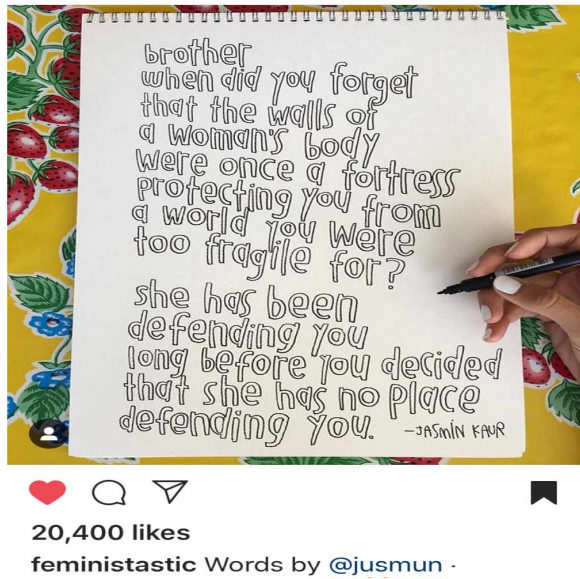 brother
when did you forget
that the walls of
a woman's body
were once a fortress
protecting you from
a world you were
too fragile for?
she has been
defending you
long before you decided
that she has no place
defending you.
-JASMIN KAUR
20,400 likes
feministastic Words by @jusmun ·